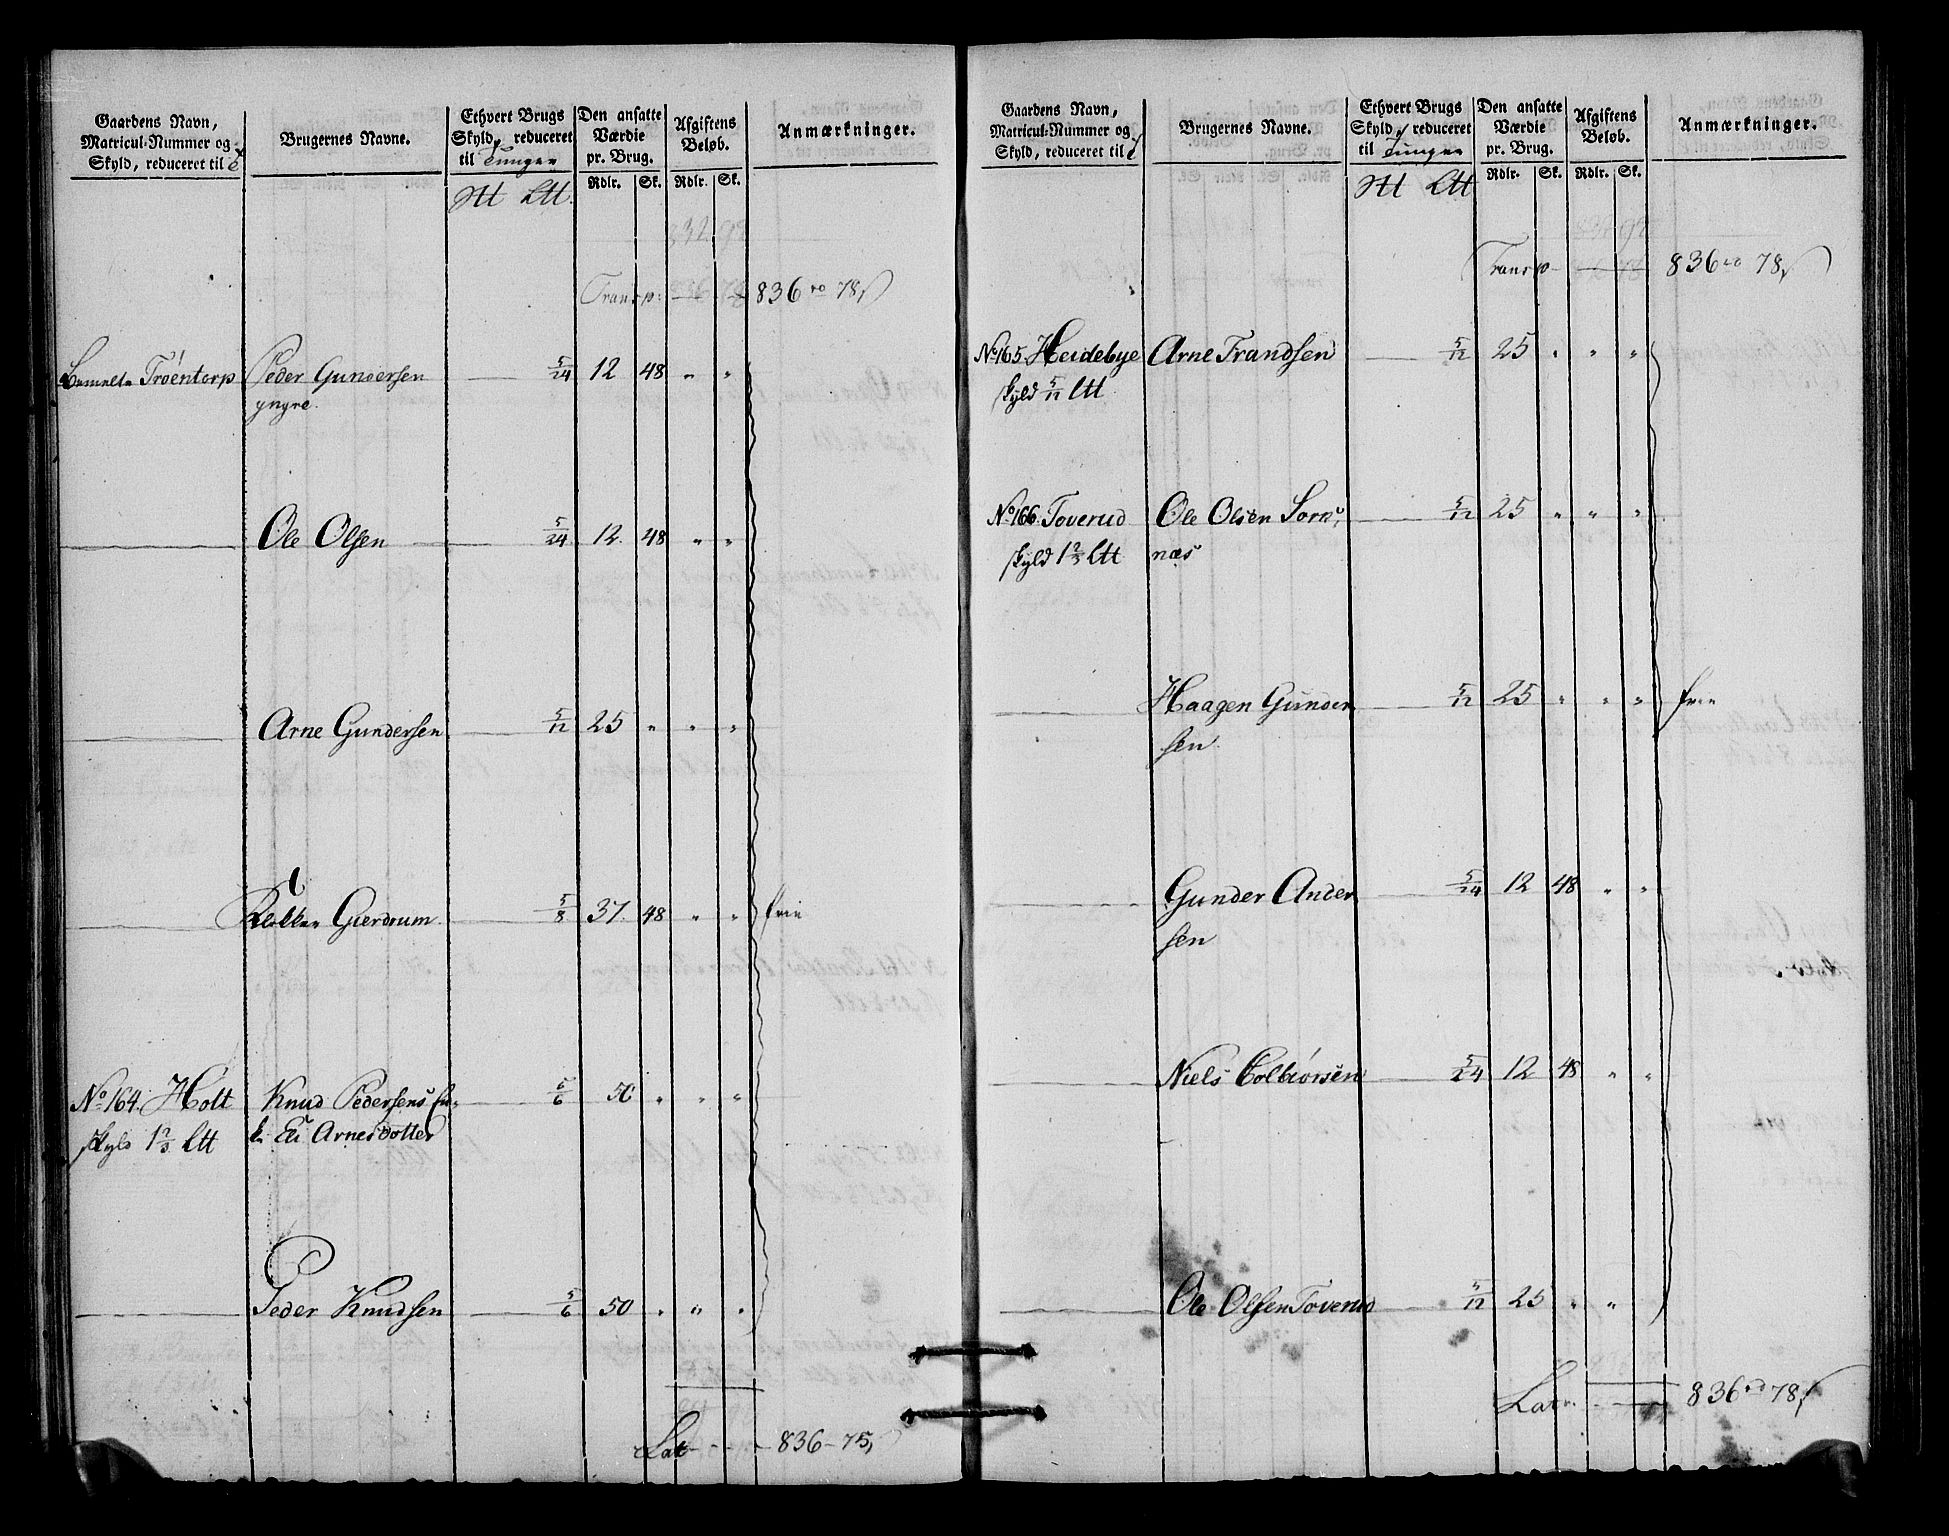 Gaardens Navn,
Matricul-Nummer og
Skyld, reduceret til
Brugernes Navne.
Ethvert Brugs
Skyld, reduceret
til Tunger
Den ansatte
Værdie
pr. Brug.
Rdlr. Sk.
Afgiftens
Beløb.
Rdlr. Sk.
Anmærkninger.
Transp: 836 rd 78
Trøentorp Peder Gundersen 5/24 12 48 " "
yngre.
Ole Olsen 5/24 12 48 " "
Arne Gundersen 5/12 25 " " "
Gierdrum 5/8 37 48 " " frie
No 164. Holt Knud Pedersens 5/6 50 " " "
skyld 1 2/3 Ltt Arnesdotter
Peder Knudsen 5/6 50 " " "
Lat 836 - 75
Gaardens Navn,
Matricul-Nummer og
Skyld, reduceret til
Brugernes Navne.
Ethvert Brugs
Skyld, reduceret
til Tunger
Den ansatte
Værdie
pr. Brug.
Rdlr. Sk.
Afgiftens
Beløb.
Rdlr. Sk.
Anmærkninger.
Transp 836 rd 78
No 165. Heidebye Arne Frandsen 5/12 25 " " "
skyld 5/12 Ltt
No 166. Toverud Ole Olsen Sorn 5/12 25 " " "
skyld 1 2/3 Ltt næs
Haagen Gunder 5/12 25 " " " frie
sen
Gunder Ander 5/24 12 48 " "
sen
Niels Colbiørsen 5/24 12 48 " "
Ole Olsen Toverud 5/12 25 " "
Latr. 836 rd 78